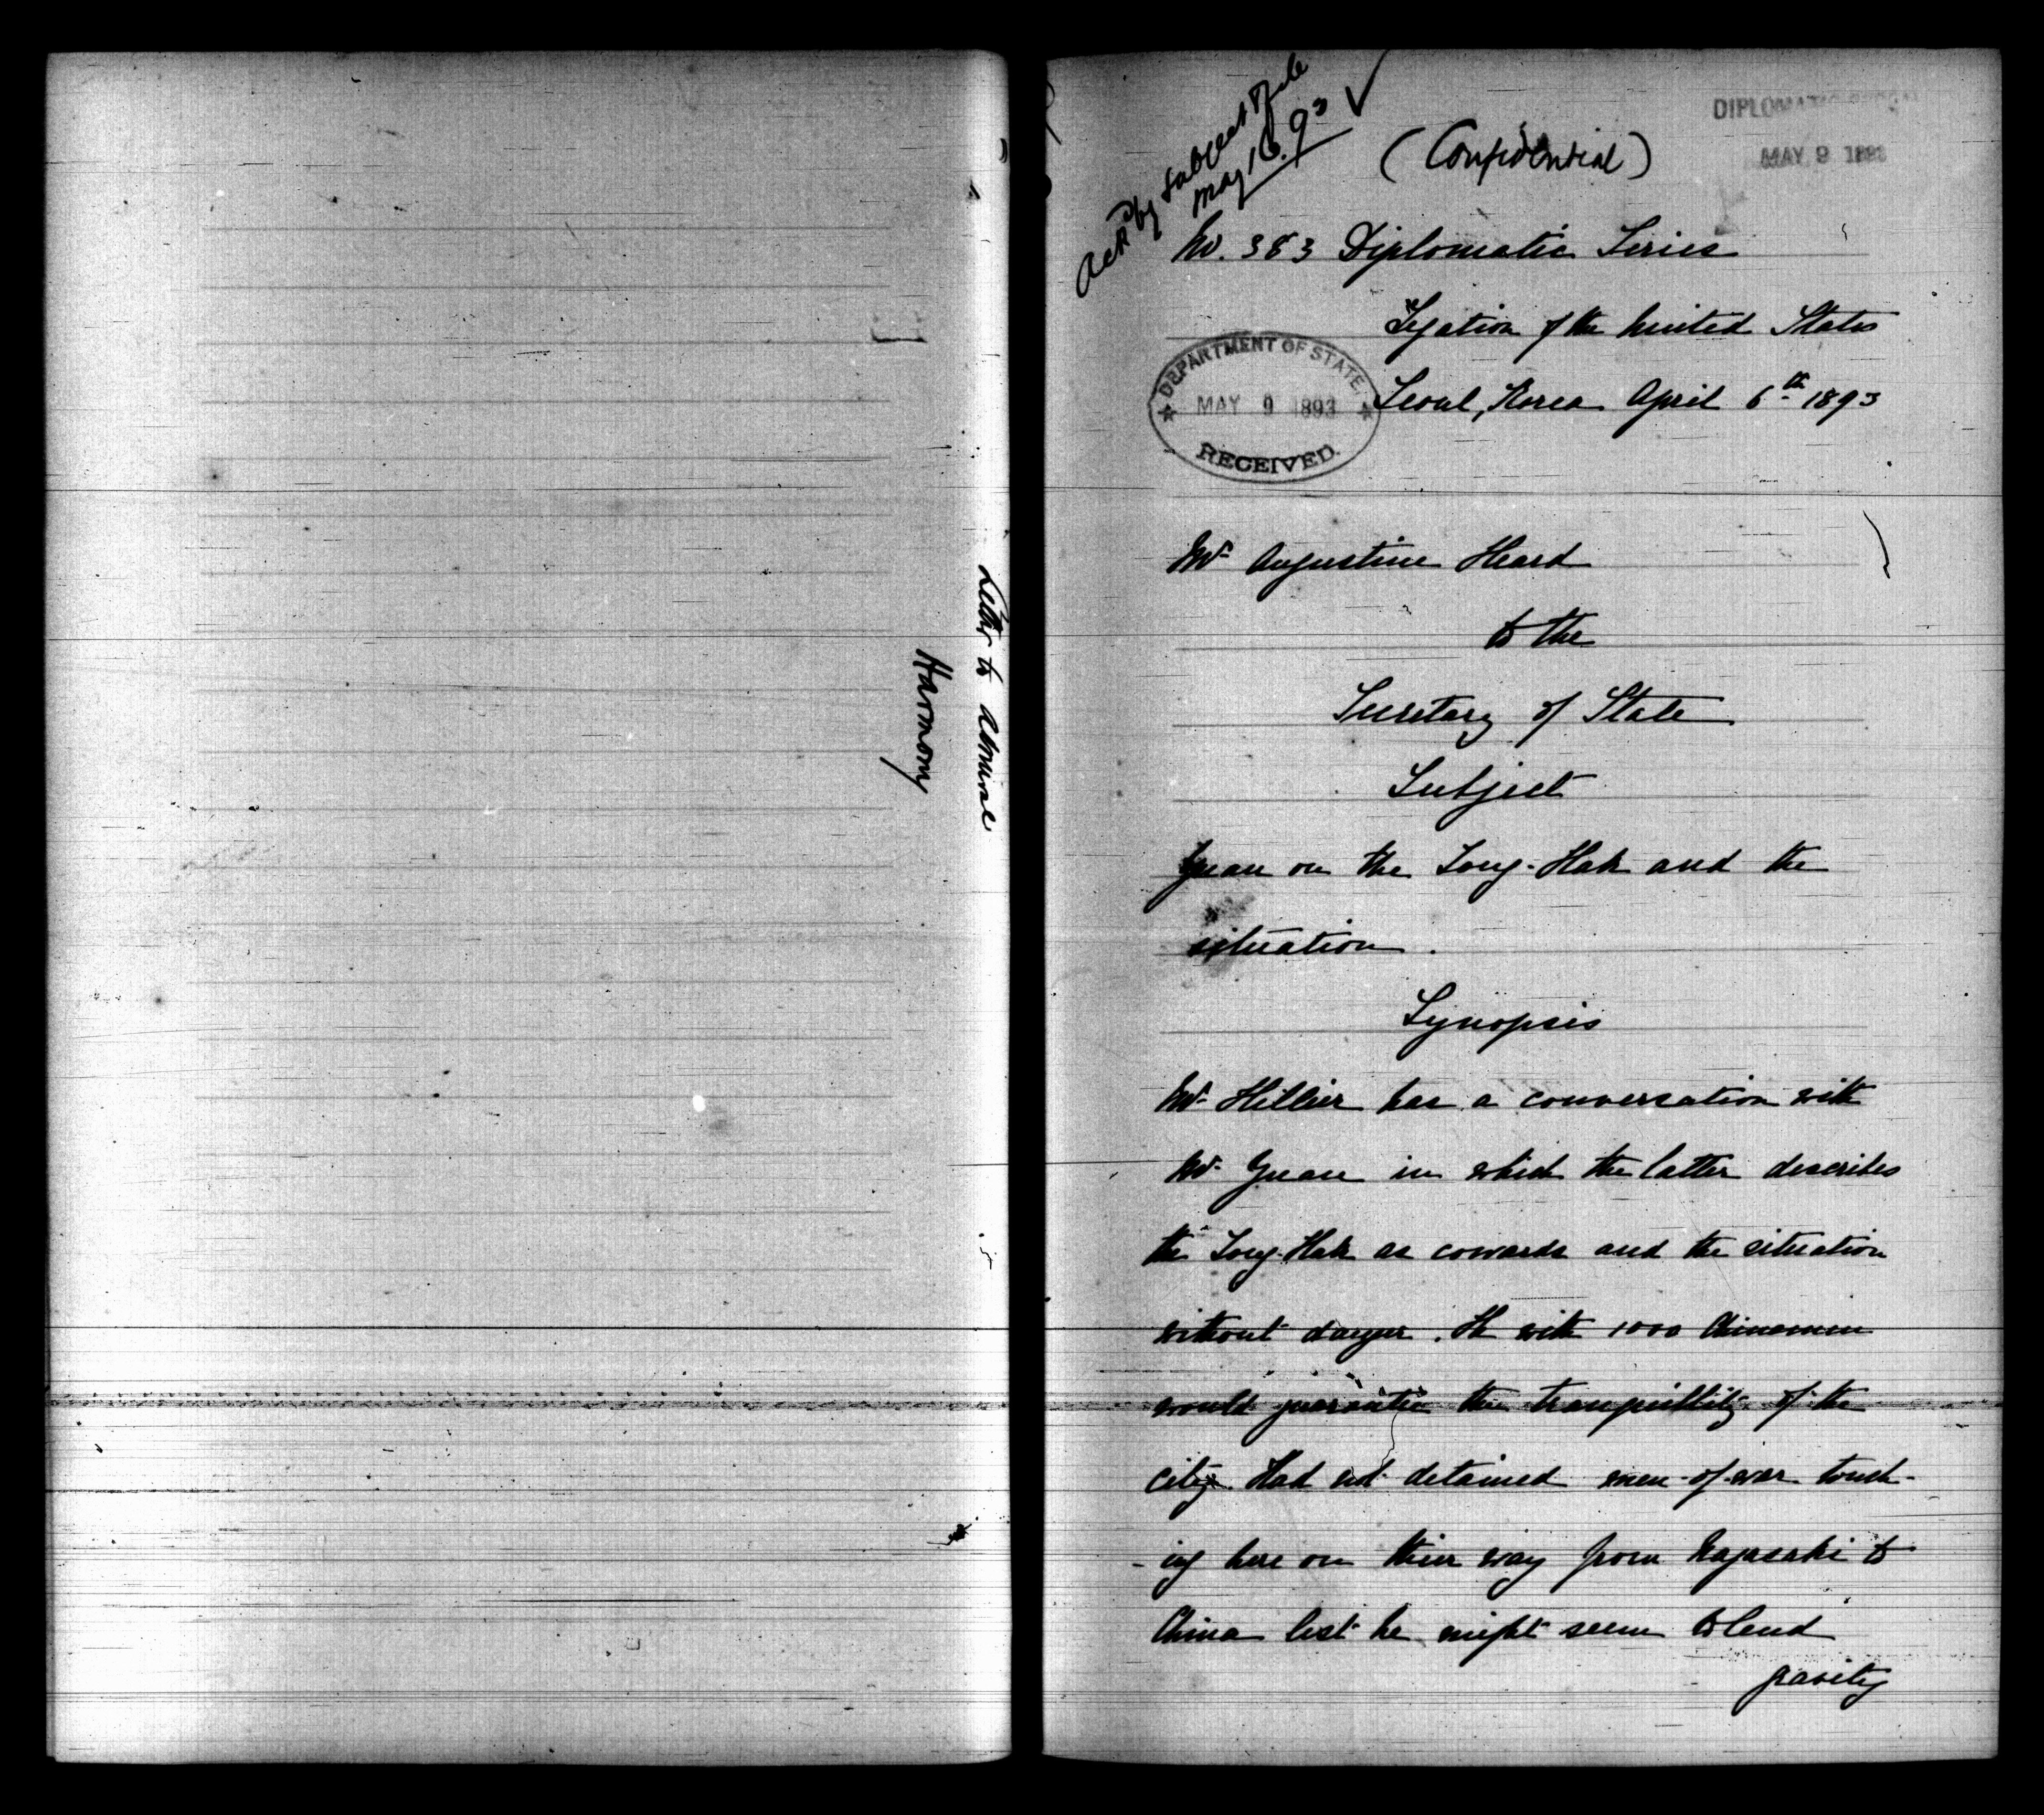 Letter to Admiral
Harmony
Ack'd by Subject File
May 16. 93
(Confidential)
DIPLOMATIC
MAY 9 1893
No. 383 Diplomatic Series
Legation of the United States
Seoul, Korea April 6th 1893
DEPARTMENT OF STATE
MAY 9 1893
RECEIVED.
Mr Augustine Heard
to the
Secretary of State
Subject
Yuan on the Tong-Hak and the
situation.
Synopsis
Mr Hillier has a conversation with
Mr Yuan in which the latter describes
the Tong-Hak as cowards and the situation
without danger. He with 1000 Chinamen
would guarantee the tranquillity of the
city. Had not detained men-of-war touch-
-ing here on their way from Nagasaki to
China lest he might seem to lend
gravity